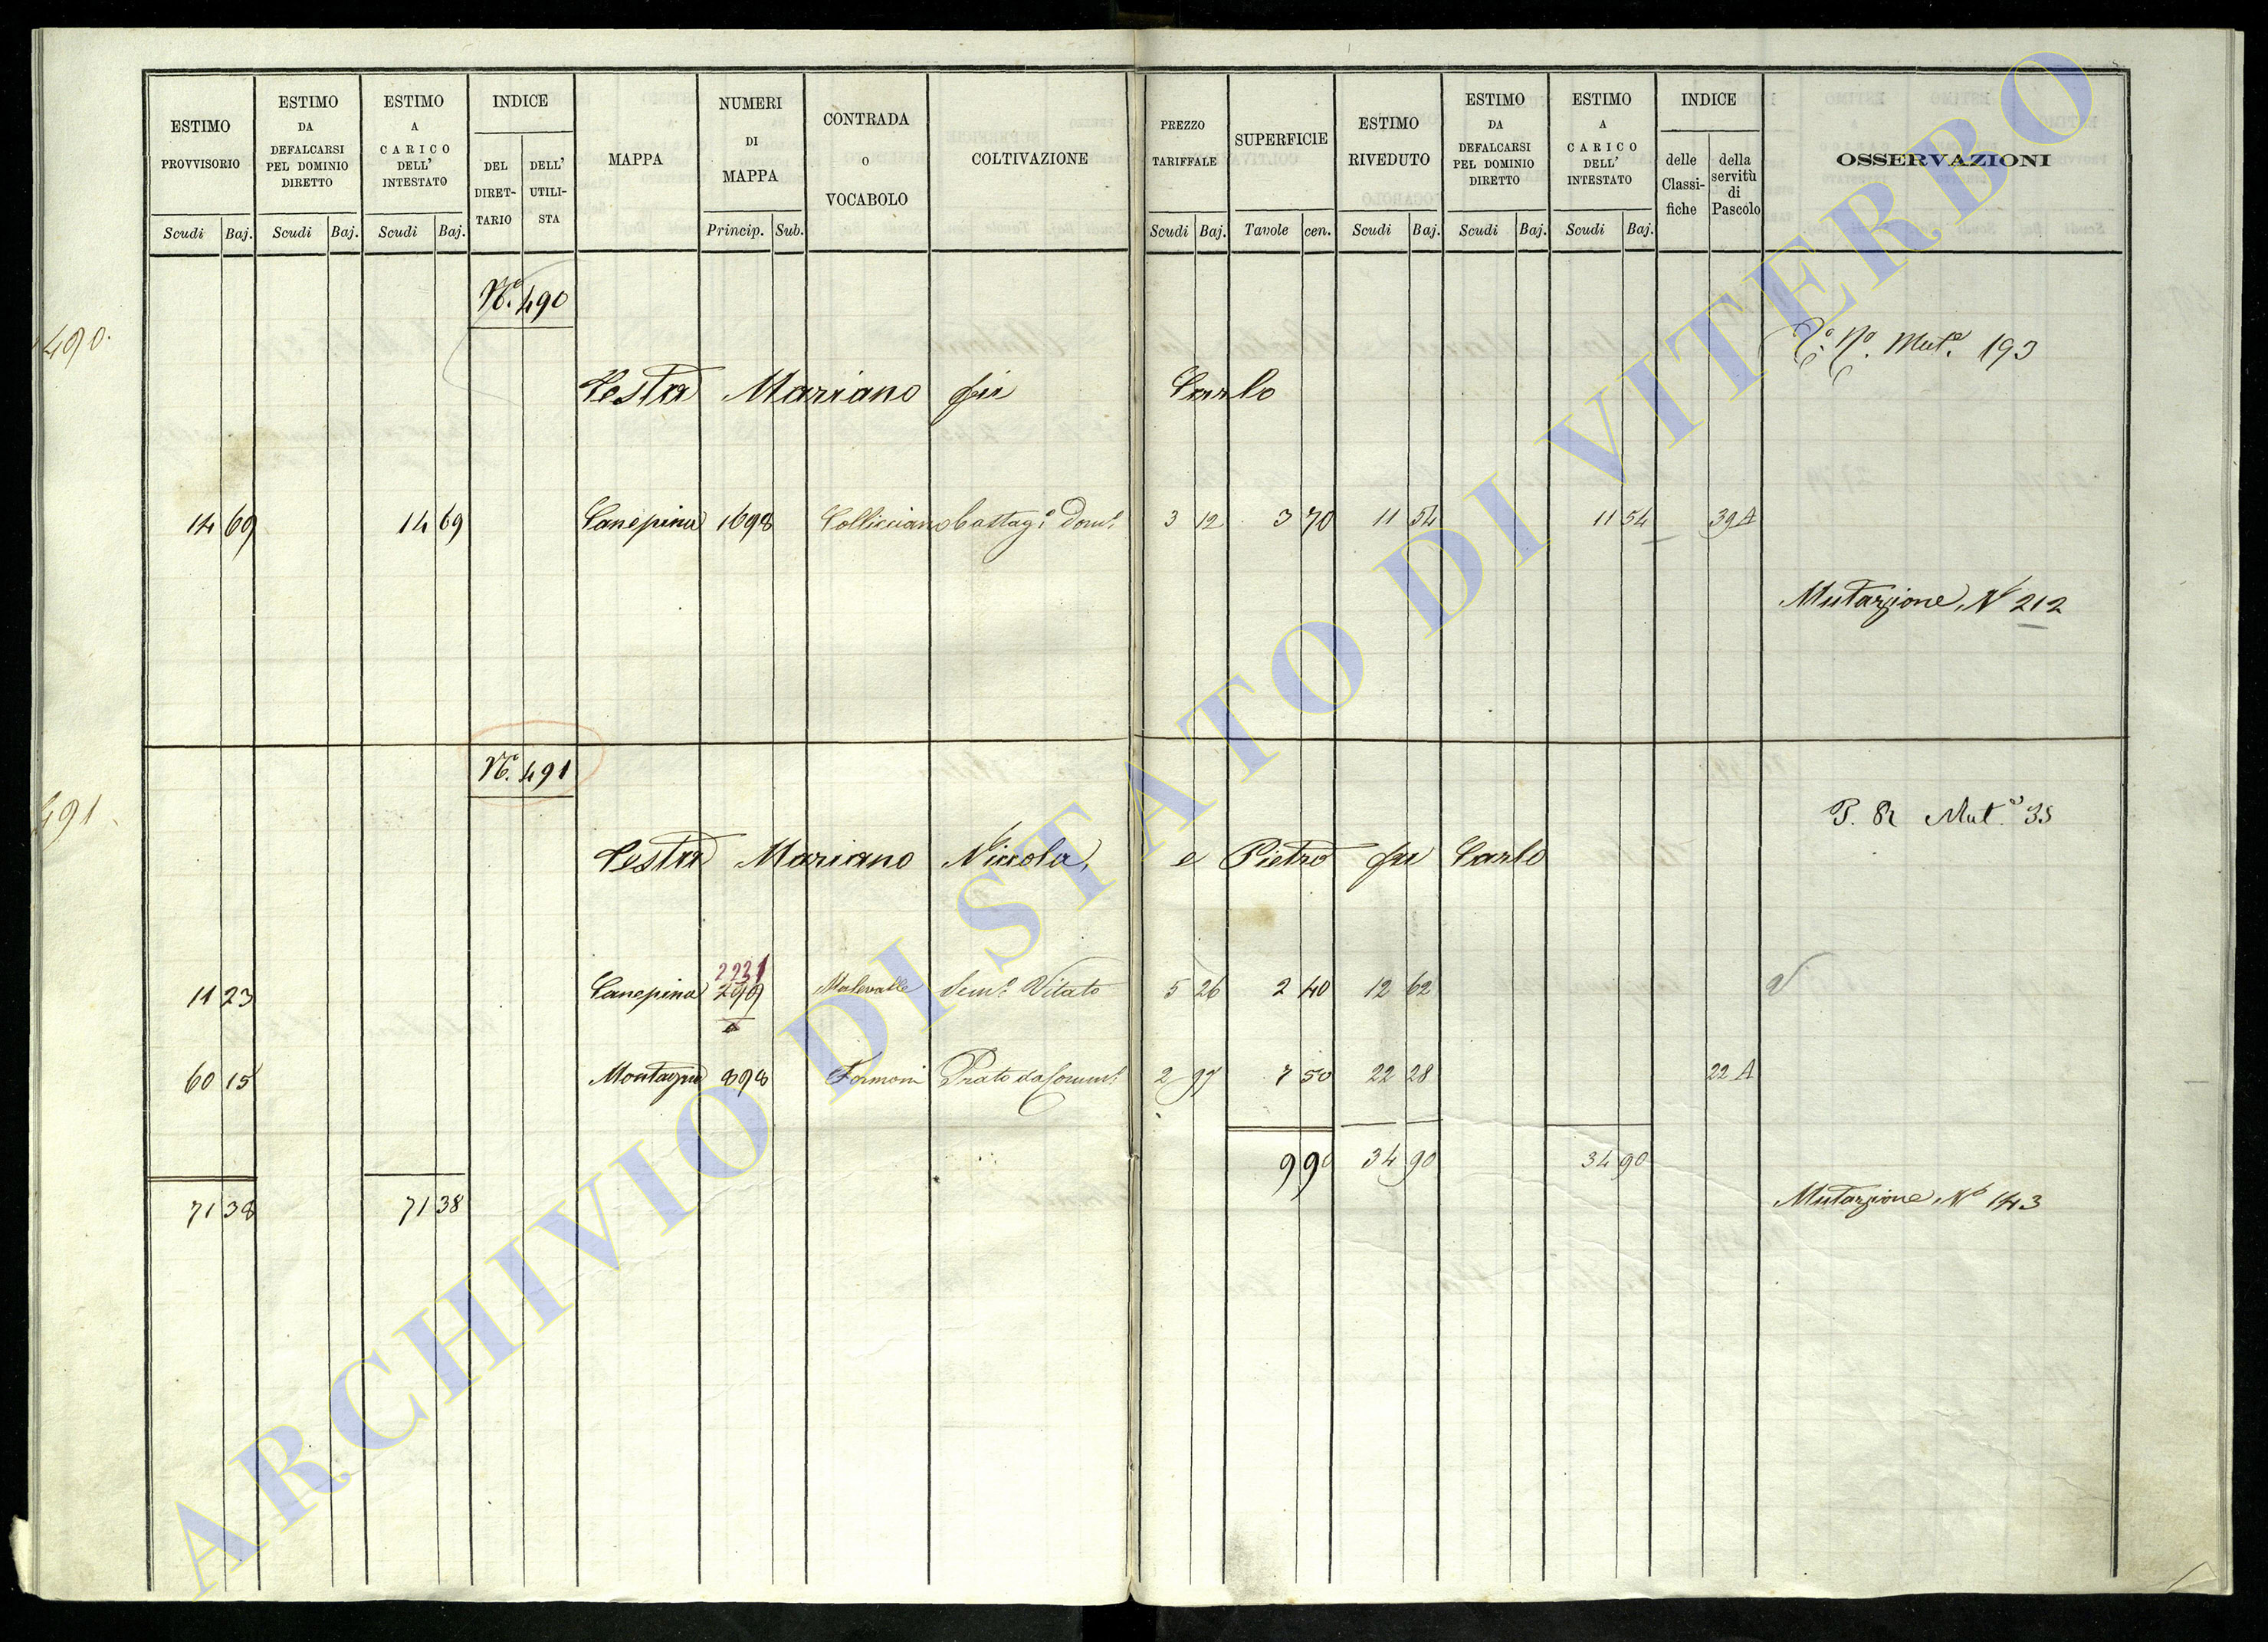 ESTIMO PROVVISORIO
ESTIMO DA DEFALCARSI PEL DOMINIO DIRETTO
ESTIMO A CARICO DELL' INTESTATO
INDICE
DEL DIRET- TARIO
DELL' UTILI- STA
MAPPA
NUMERI DI MAPPA
CONTRADA O VOCABOLO
COLTIVAZIONE
PREZZO TARIFFALE
SUPERFICIE
ESTIMO RIVEDUTO
ESTIMO DA DEFALCARSI PEL DOMINIO DIRETTO
ESTIMO A CARICO DELL' INTESTATO
INDICE
delle Classi- fiche
della servitù di Pascolo
OSSERVAZIONI
Scudi Baj. Scudi Baj. Scudi Baj. Princip. Sub. Scudi Baj. Tavole cen. Scudi Baj. Scudi Baj. Scudi Baj.
N.° 490
490.
Mut.e 193
Testa Mariano fu Carlo
14 69 14 69 Canepina 1698 Collicciano Castag.o Dom.o 3 12 3 70 11 54 11 54 39 A
Mutazione N 212
N.° 491
491
P. R Mut.e 35
Testa Mariano Niccola, e Pietro fu Carlo
2231
11 23 Canepina 299 Malevalle Sem.o Vitato 5 26 2 40 12 62
60 15 Montagna 898 Formoni Prato da 2 97 7 50 22 28 22 A
9 90 34 90 34 90
71 38 71 38
Mutazione N° 143
ARCHIVIO DI STATO DI VITERBO